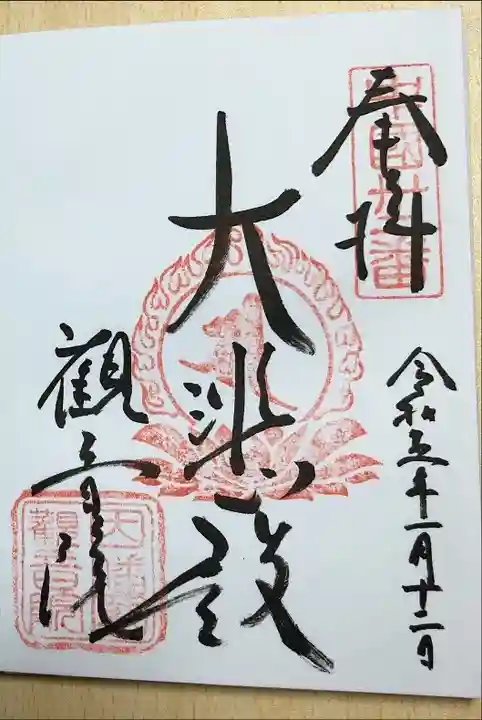 奉拝
大悲殿
観音院
令和五年十一月十二日
観音院